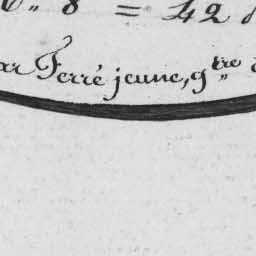 8 = 42
Ferré jeune, g.tre